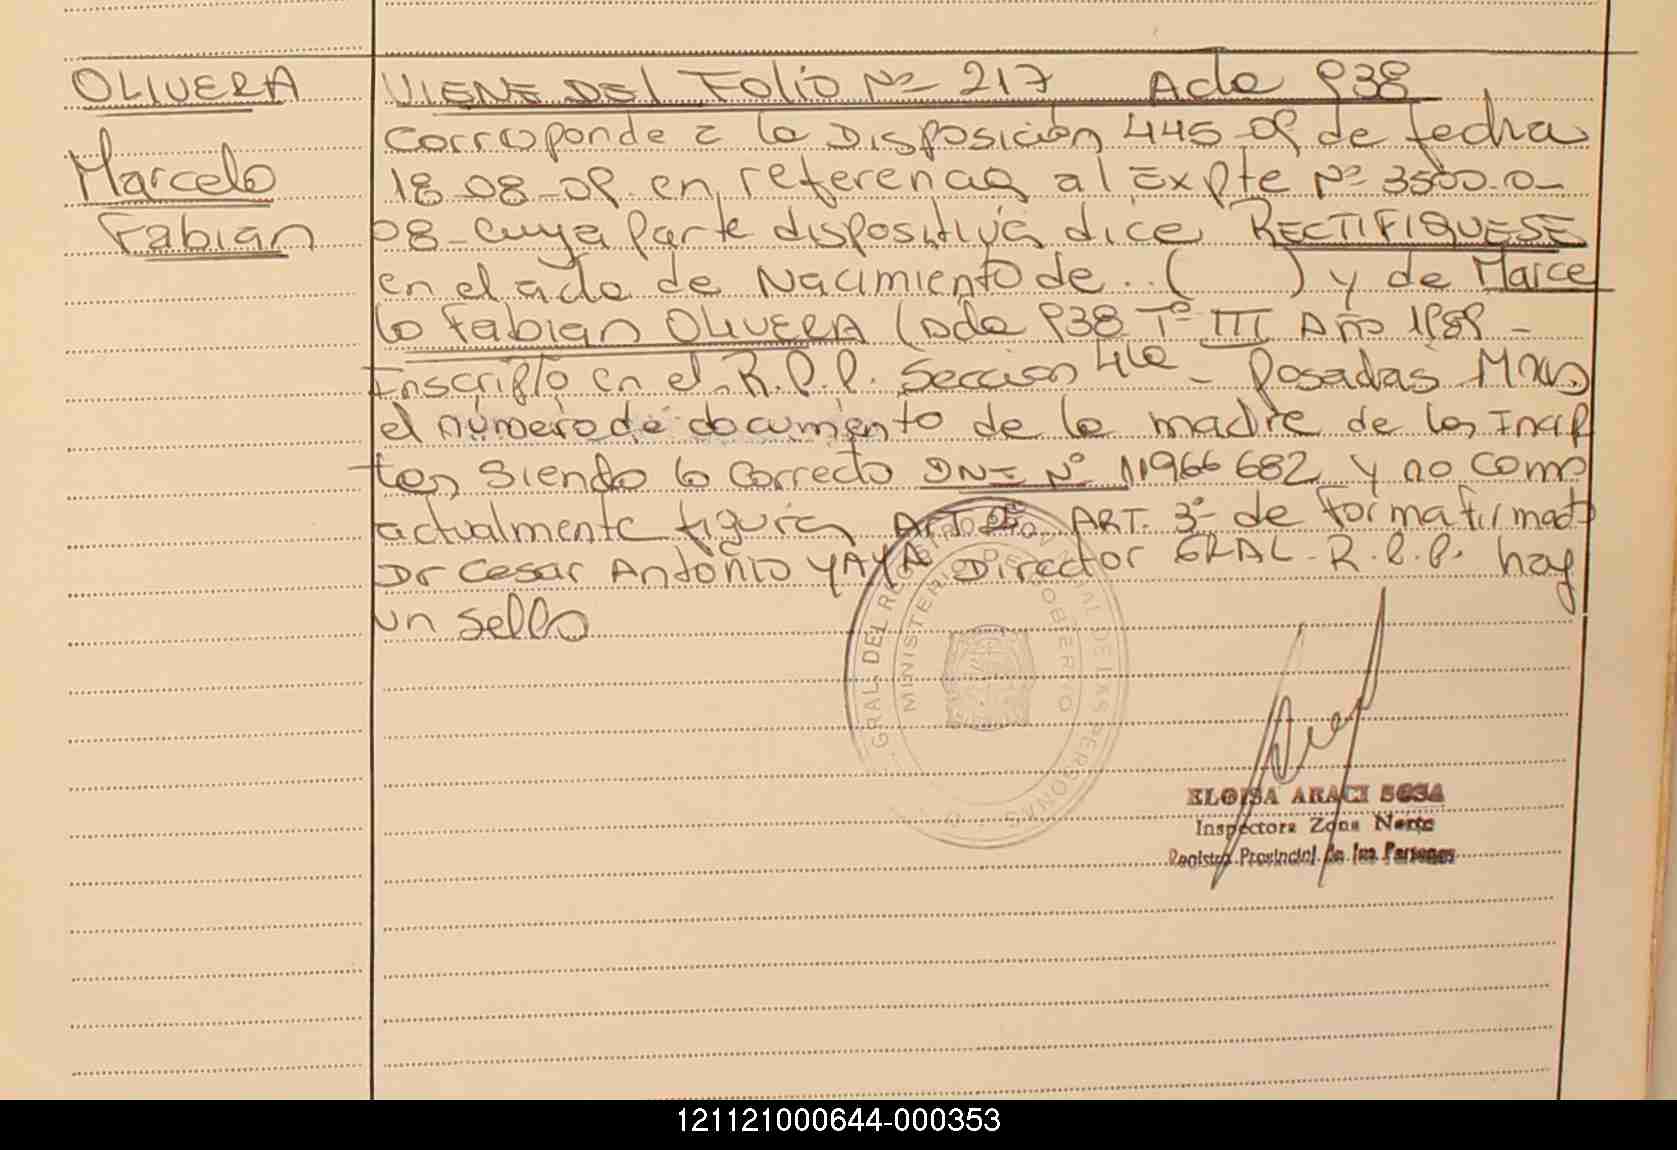 OLIVERA
Marcelo
Fabian
VIENE DEL Folio Nº 217 Acta 938
Corresponde a la Disposición 445-09 de fecha
18-08-09 en referencia al Expte Nº 3500-0-
08- cuya parte dispositiva dice RECTIFIQUESE
en el acta de Nacimiento de .. ( ) y de Marce
lo Fabian OLIVERA (Acta 938 Tº III Año 1989 -
Inscripto en el R.P.P. Sección 4ta - Posadas Mnes)
el número de documento de la madre de los Inscrip
tos, siendo lo correcto DNI Nº 11966682 y no como
actualmente figura, ART 2º ART. 3º de forma firmado
Dr Cesar Antonio YAYA Director GRAL - R.P.P. hay
un sello
GRAL. DEL REGISTRO PROVINCIAL DE LAS PERSONAS
MINISTERIO DE GOBIERNO
ELOISA ARACI SOSA
Inspectora Zona Norte
Registro Provincial de las Personas
121121000644-000353